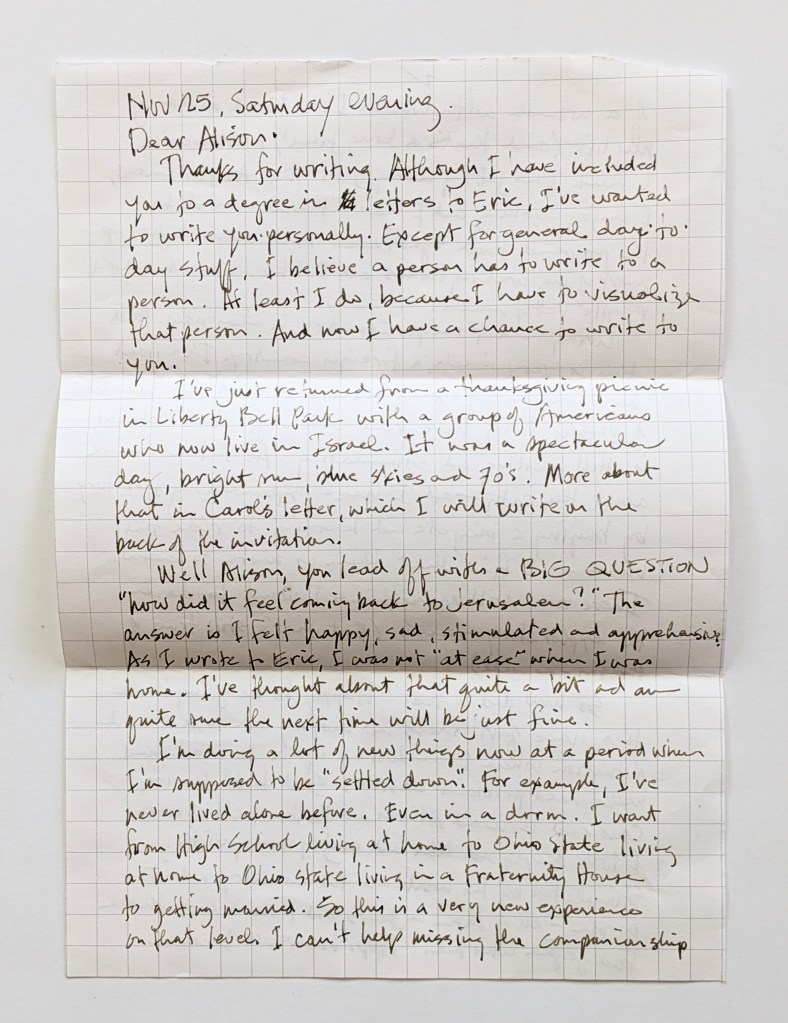 Nov 25, Saturday evening.
Dear Alison.
Thanks for writing. Although I have included
you to a degree in letters to Eric, I've wanted
to write you personally. Except for general day-to-
day stuff, I believe a person has to write to a
person. At least I do, because I have to visualize
that person. And now I have a chance to write to
you.
I've just returned from a thanksgiving picnic
in Liberty Bell Park with a group of Americans
who now live in Israel. It was a spectacular
day, bright sun, blue skies and 70's. More about
that in Carol's letter, which I will write on the
back of the invitation.
Well Alison, you lead off with a BIG QUESTION
"how did it feel coming back to Jerusalem?" The
answer is I felt happy, sad, stimulated and apprehensive.
As I wrote to Eric, I was not "at ease" when I was
home. I've thought about that quite a bit ad am
quite sure the next time will be just fine.
I'm doing a lot of new things now at a period when
I'm supposed to be "settled down". For example, I've
never lived alone before. Even in a dorm. I want
from High School living at home to Ohio State living
at home to Ohio state living in a Fraternity House
to getting married. So this is a very new experience
on that level. I can't help missing the companionship